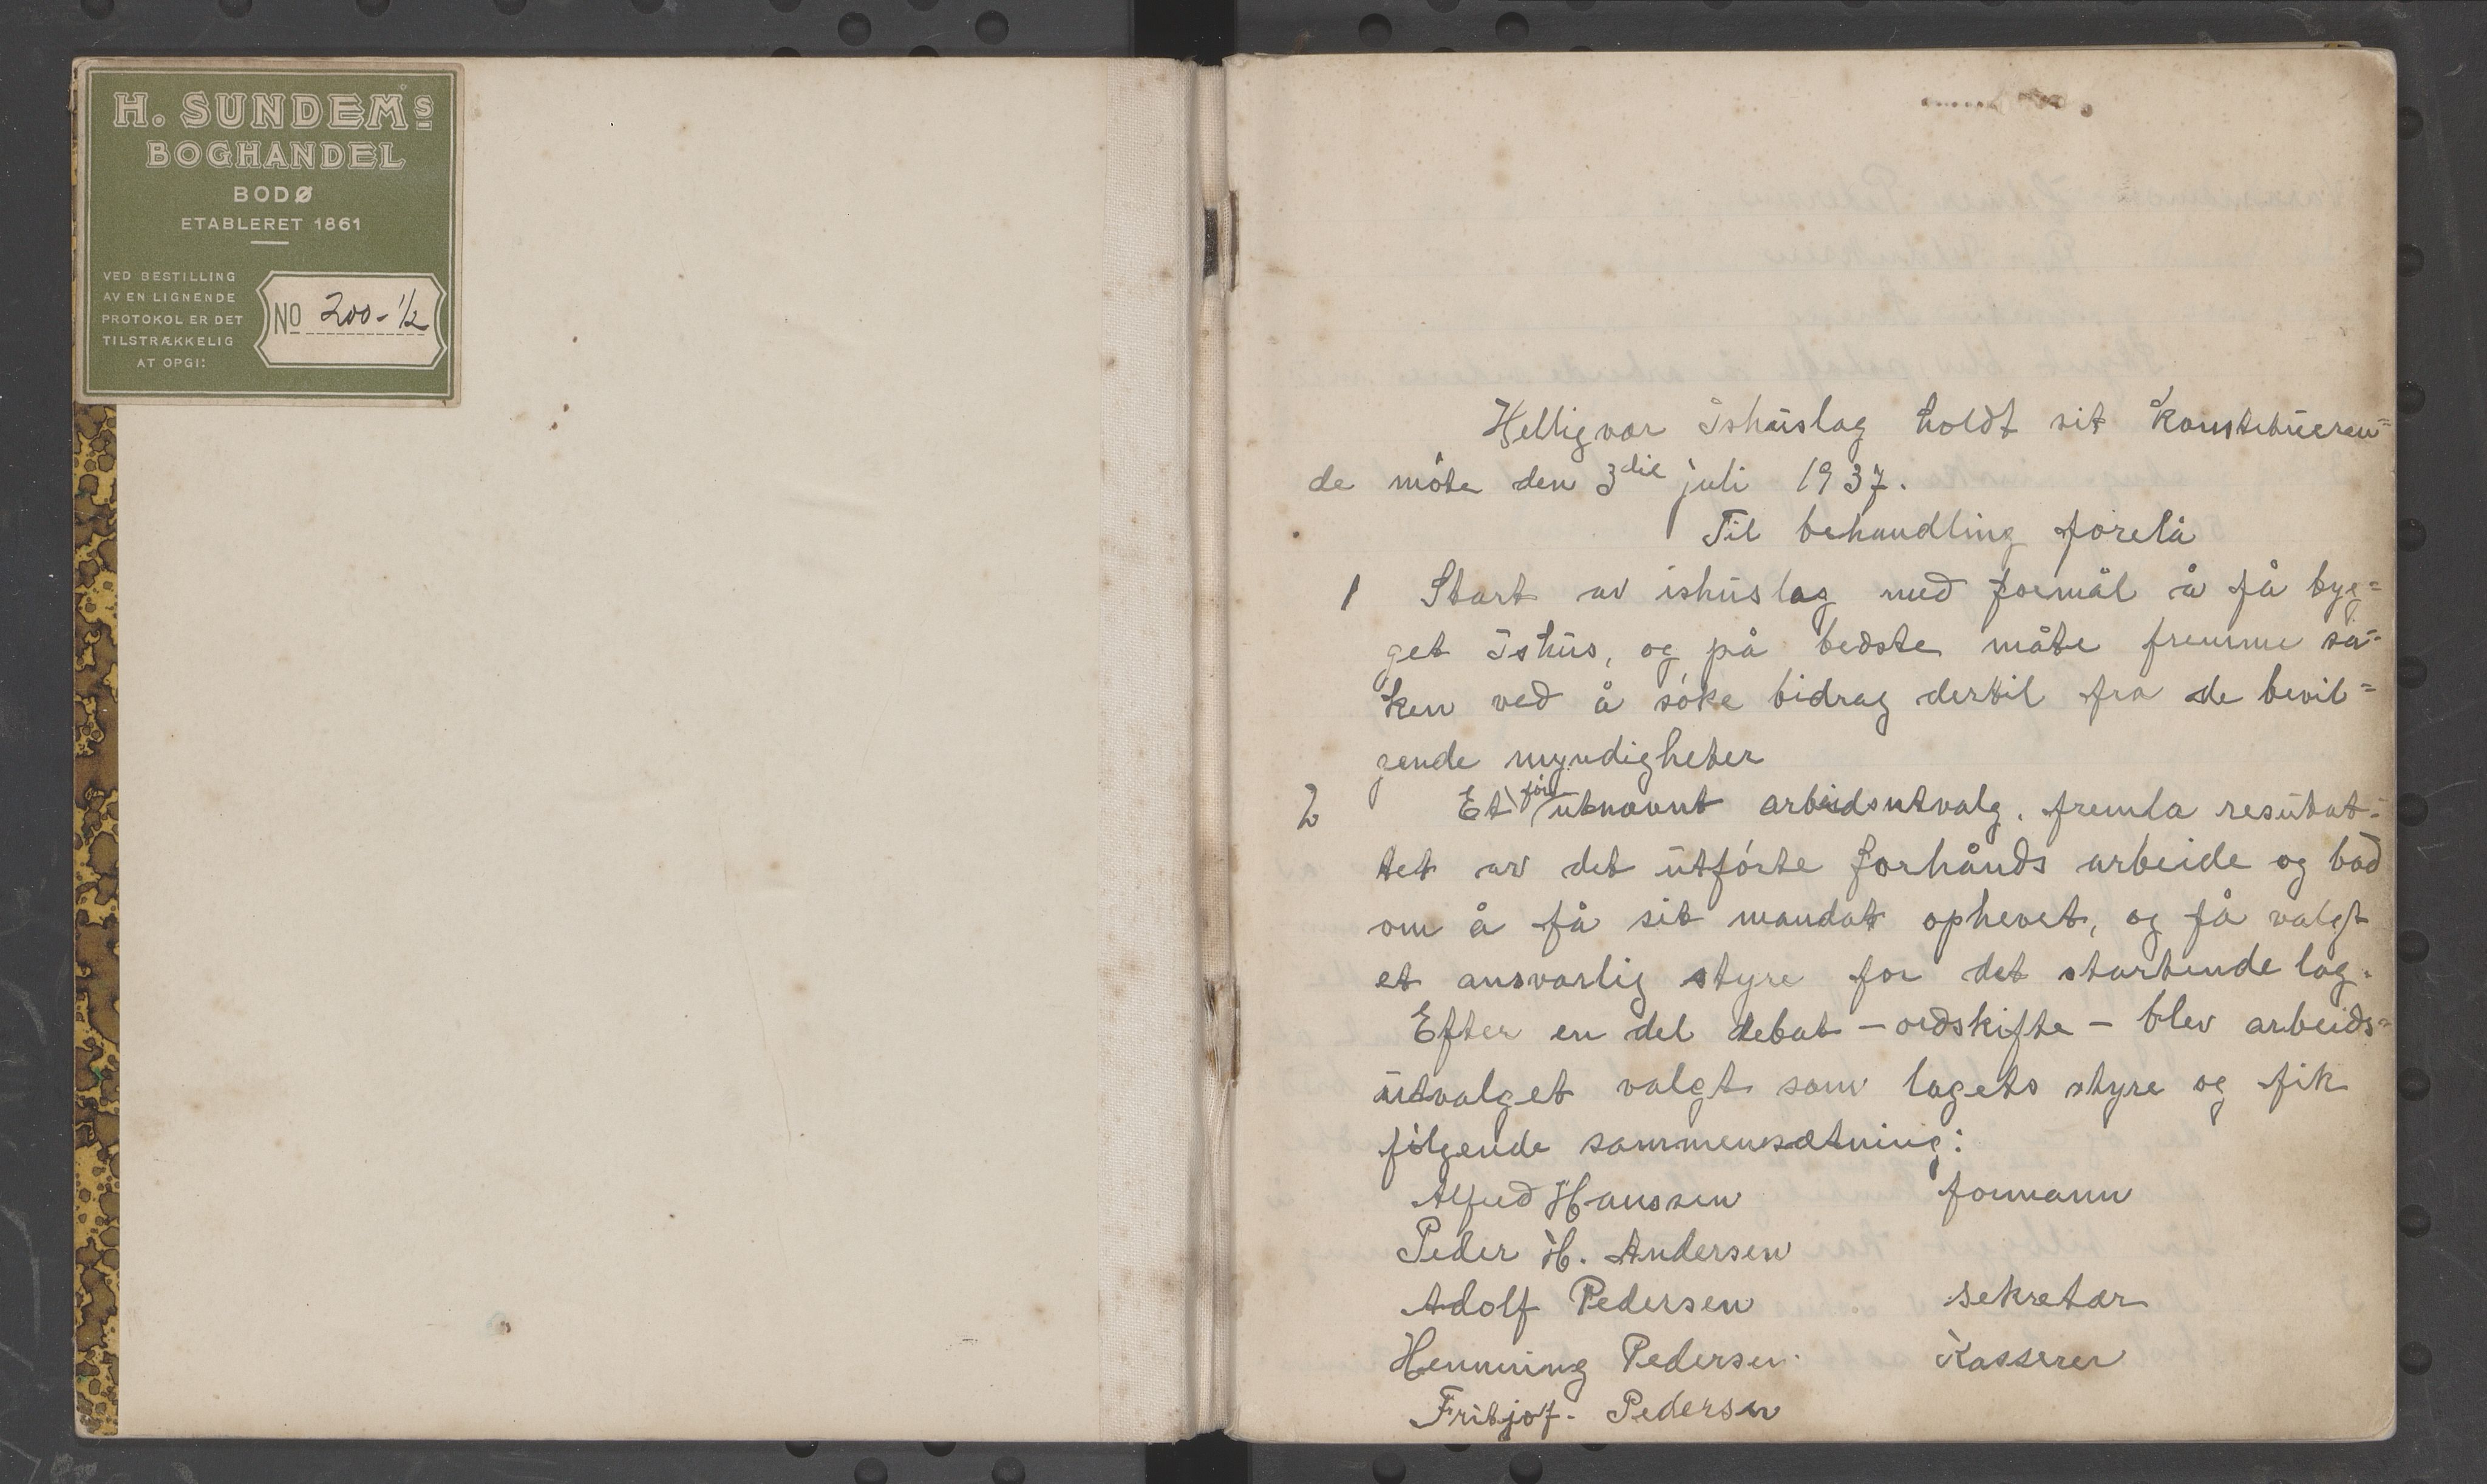 H. SUNDEMS
BOGHANDEL
BODØ
ETABLERET 1861
VED BESTILLING
AV EN LIGNENDE
PROTOKOL ER DET
TILSTRÆKKELIG
AT OPGI:
No 200-1/2
Helligvær Ishuslag holdt sit konstitueren=
de møte den 3die juli 1937.
Til behandling forelå
1 Start av ishuslag med formål å få byg=
get Ishus, og på bedste måte fremme sa=
ken ved å søke bidrag dertil fra de bevil=
gende myndigheter
2 Et før utnævnt arbeidsutvalg. fremla resutat=
tet av det utførte forhånds arbeide og bad
om å få sit mandat ophevet, og få valgt
et ansvarlig styre for det startende lag.
Efter en del debat - ordskifte - blev arbeids=
utvalget valgt som lagets styre og fik
følgende sammensætning:
Alfred Hanssen formann
Peder H. Andersen
Adolf Pedersen sekretær
Henning Pedersen. Kasserer
Fritjof. Pedersen